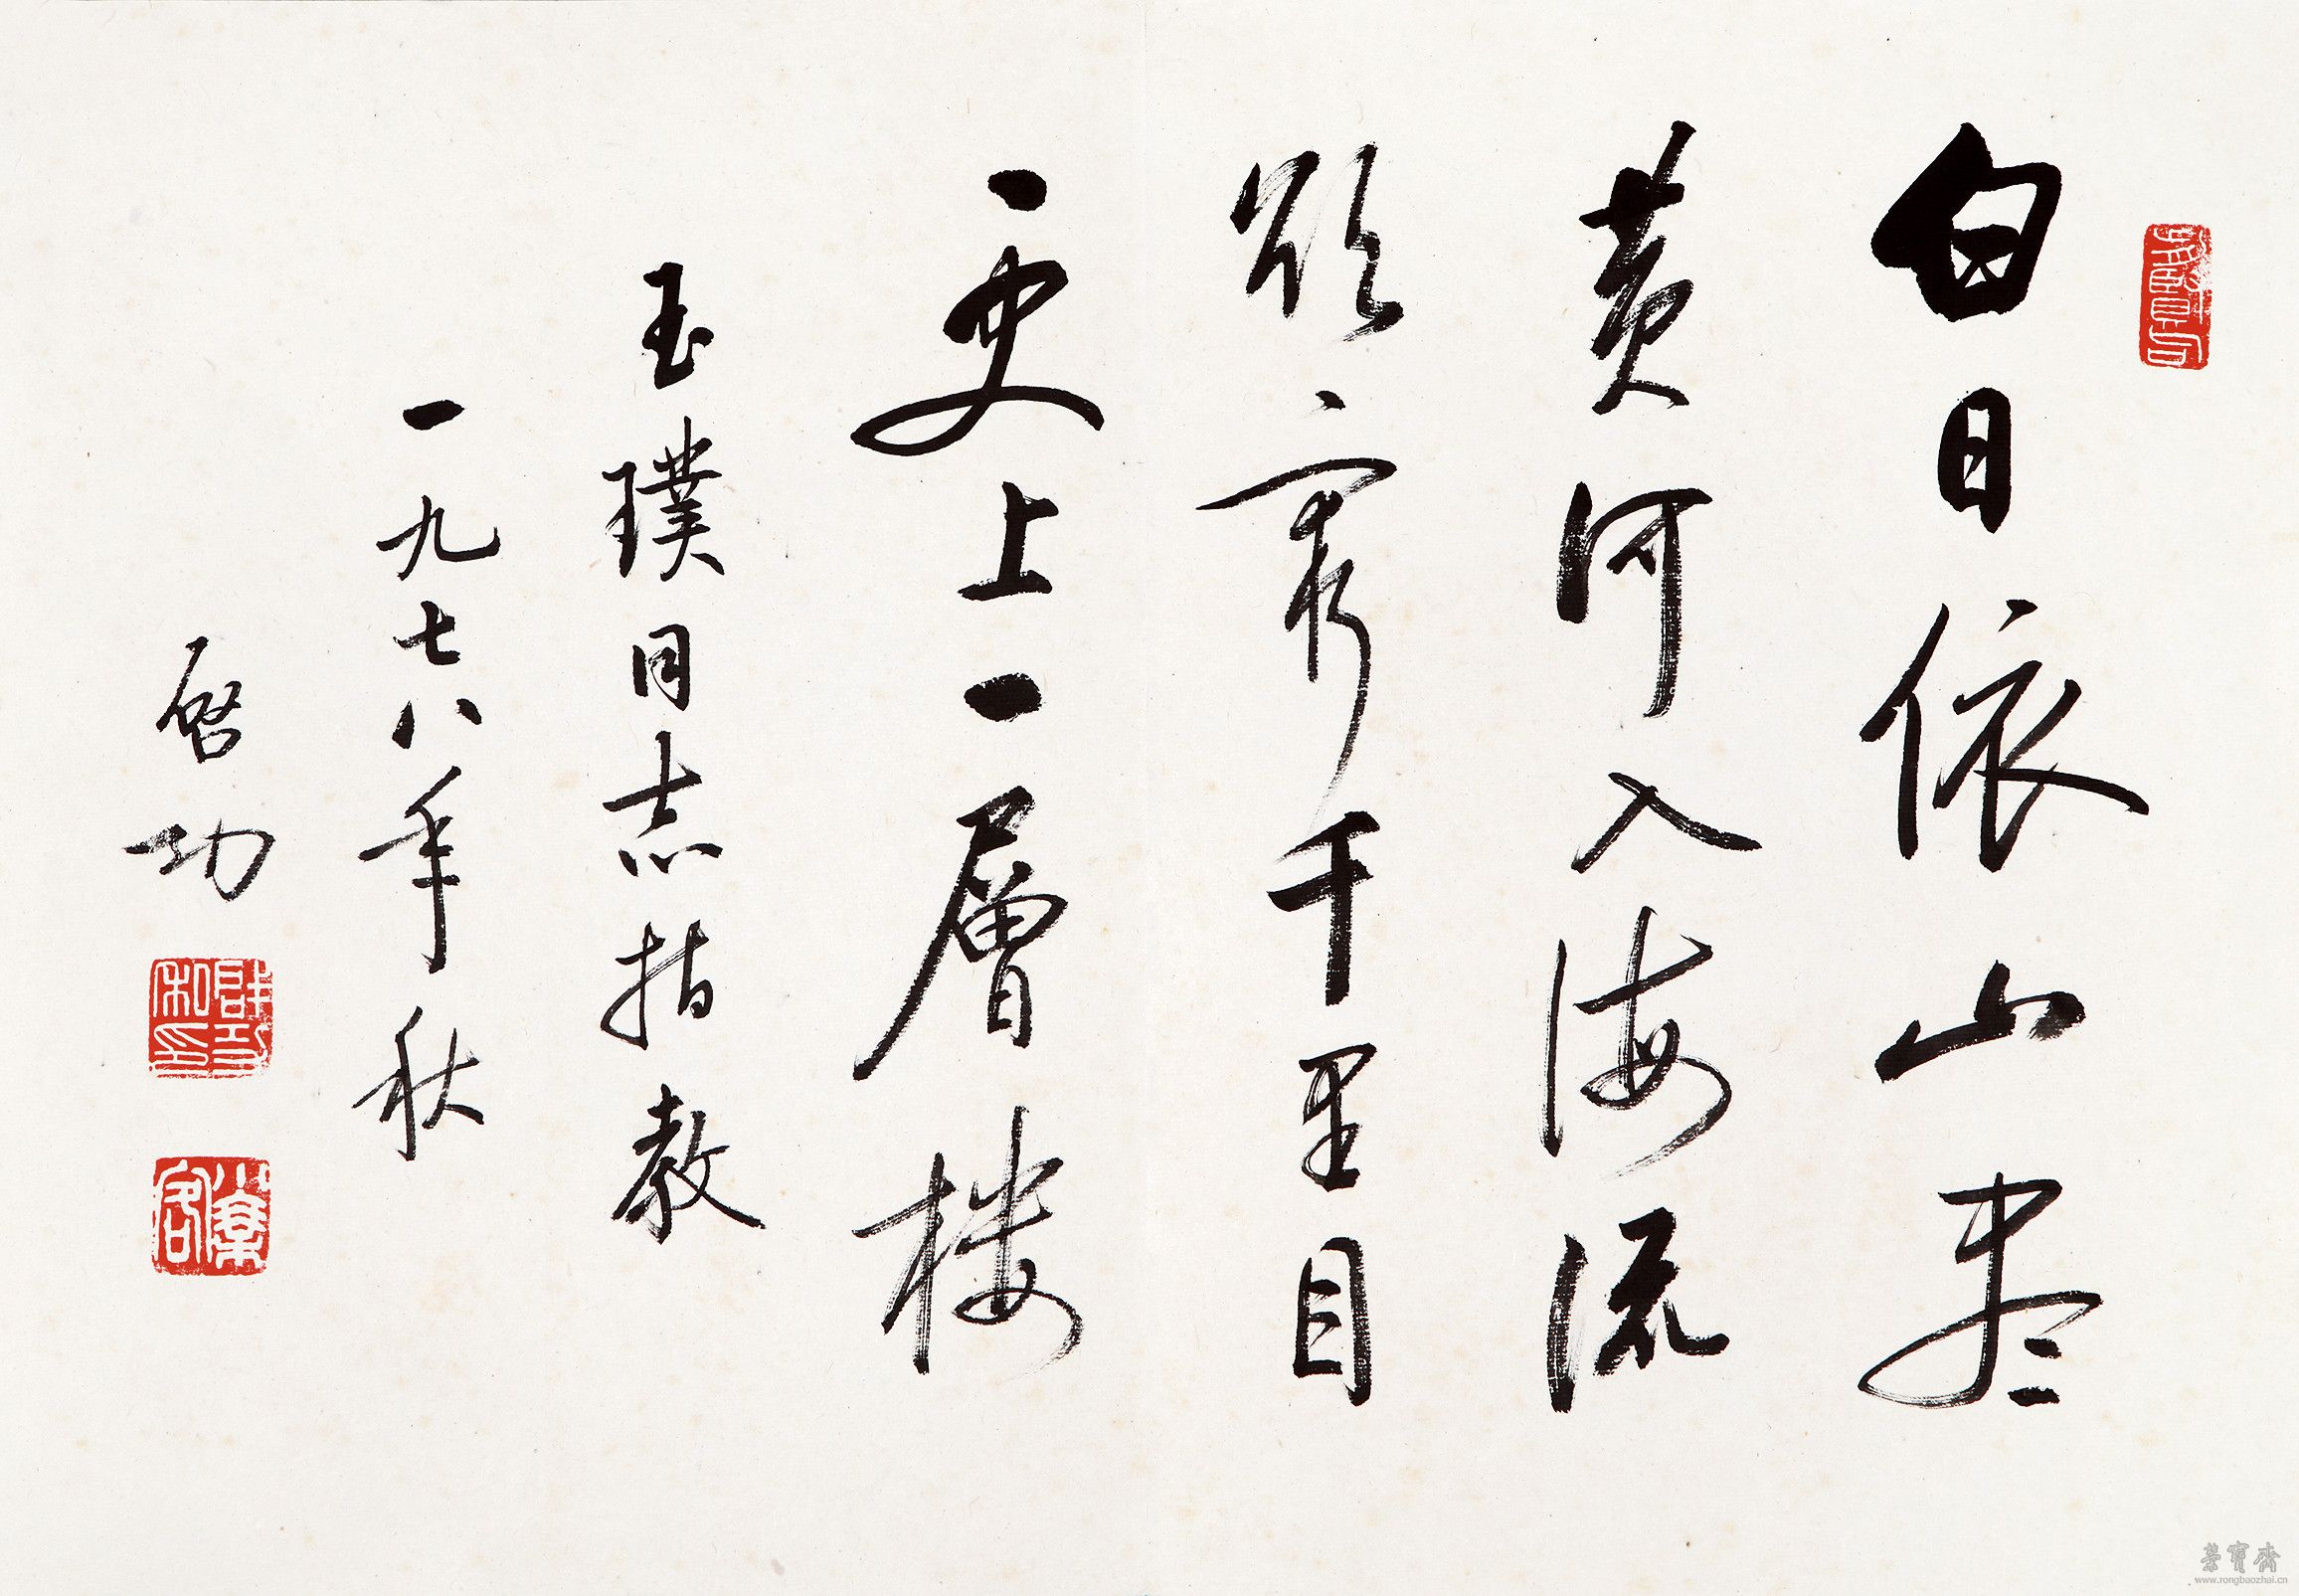 白日依山尽
黄河入海流
欲窮千里目
更上一層楼
玉璞同志指教
一九七八年秋
啓功
啓功私印
榮寶齋
www.rongbaozhai.cn